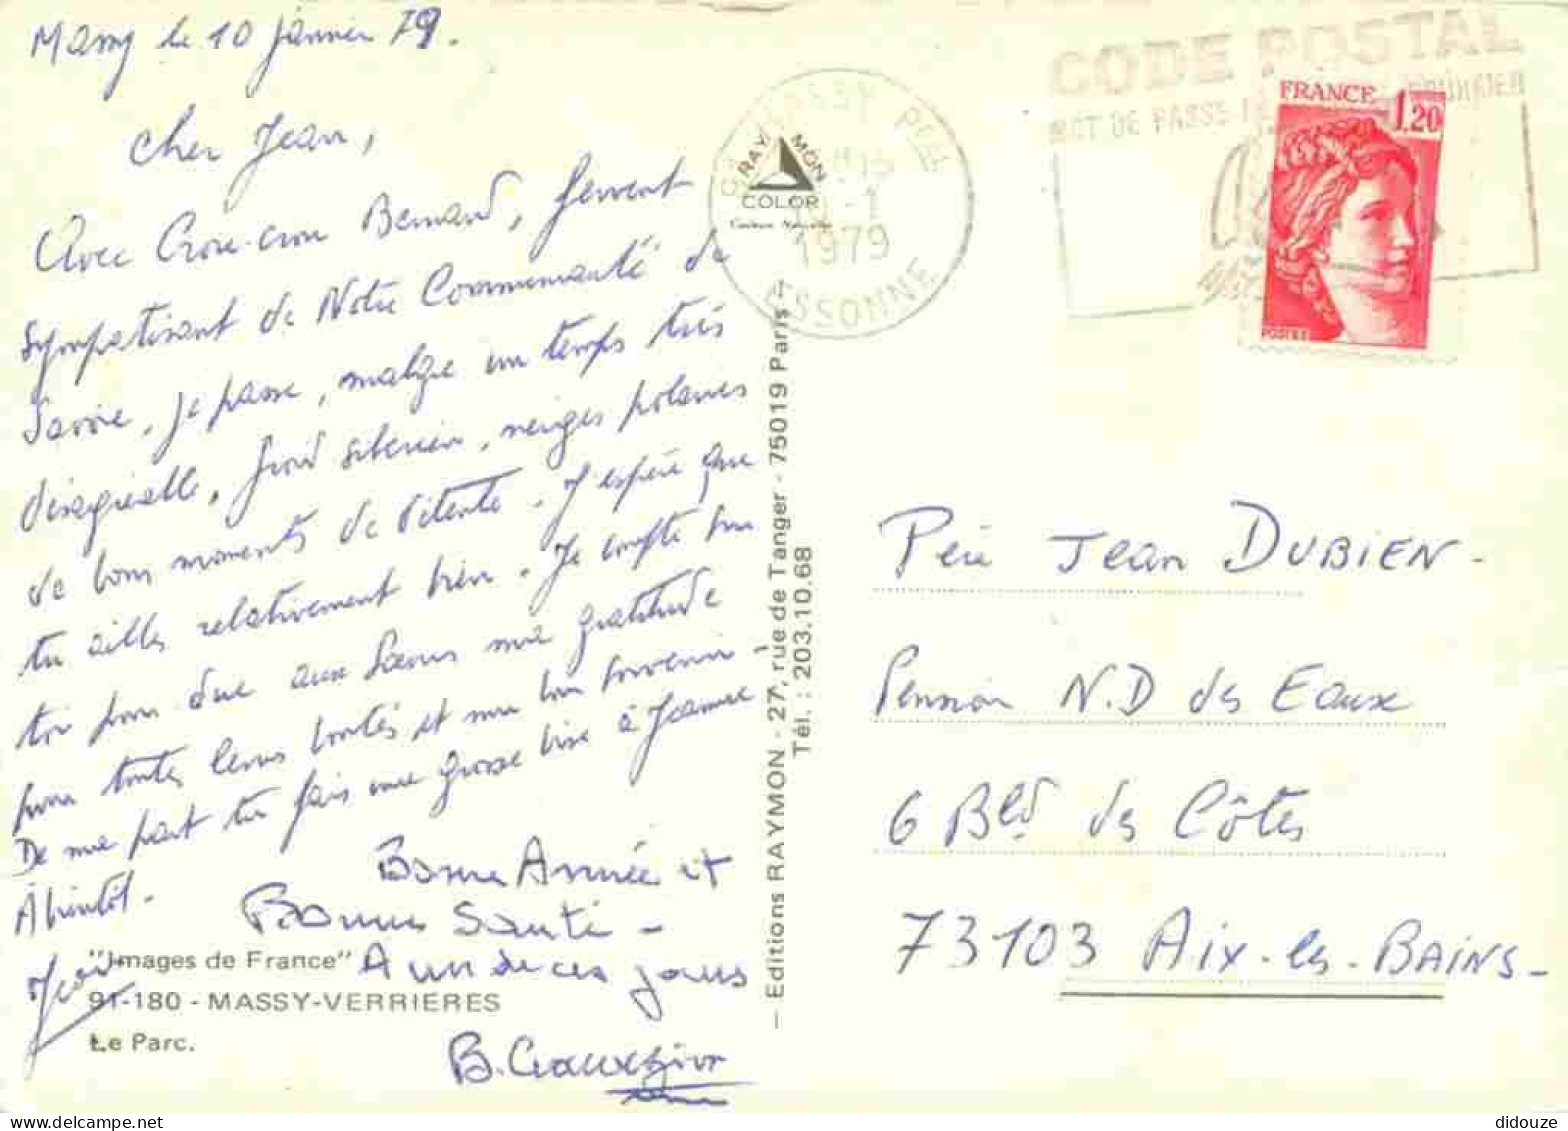 Massy le 10 janvier 79.
Cher Jean,
Avec Crou-crou Bernard, fervent
sympathisant de Notre Communauté de
Savoie, je passe, malgré un temps très
désagréable, froid sibérien, neiges polaires
de bons moments de détente. J'espère que
tu ailles relativement bien. Je compte sur
toi pour dire aux Sœurs ma gratitude
pour toutes leurs bontés et mon bon souvenir.
De ma part tu fais une grosse bise à Jeanne
A bientôt.
Bonne Année et
Bonne Santé -
A un de ces jours
B.
"Images de France"
91-180 - MASSY-VERRIERES
Le Parc.
RAYMON
COLOR
— Editions RAYMON - 27, rue de Tanger - 75019 Paris —
Tél. : 203.10.68
MASSY Pal
1979
ESSONNE
CODE POSTAL
MOT DE PASSE
FRANCE
1,20
POSTES
Père Jean DUBIEN -
Pension N.D des Eaux
6 Bld des Côtes
73103 Aix-les-BAINS -
didouze